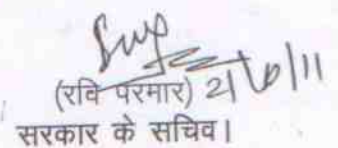 (रवि परमार) 21/6/11
सरकार के सचिव।